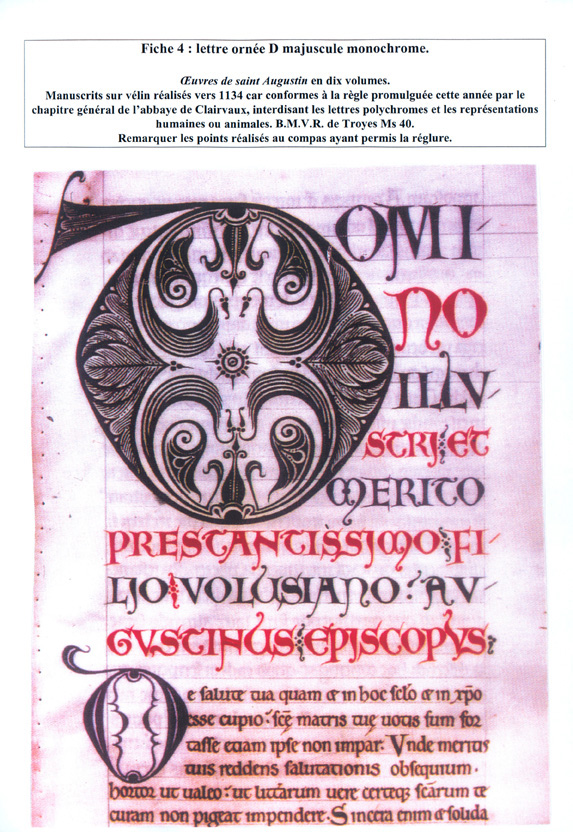 Fiche 4 : lettre ornée D majuscule monochrome.
Œuvres de saint Augustin en dix volumes.
Manuscrits sur vélin réalisés vers 1134 car conformes à la règle promulguée cette année par le
chapitre général de l'abbaye de Clairvaux, interdisant les lettres polychromes et les représentations
humaines ou animales. B.M.V.R. de Troyes Ms 40.
Remarquer les points réalisés au compas ayant permis la réglure.
DOMI
NO
ILLV
STRI ET
MERITO
PRESTANTISSIMO FI
LIO VOLUSIANO AV
GVSTINUS EPISCOPVS
De salute tua quam & in hoc sclo & in xpo
esse cupio: sce matris tue uotis sum for
tasse etiam ipse non impar. Vnde meritus
tuis reddens salutationis obsequium.
hortor ut ualeo: ut litterarum uere certeq; scarum te
curam non pigeat impendere. Sincera enim & solida